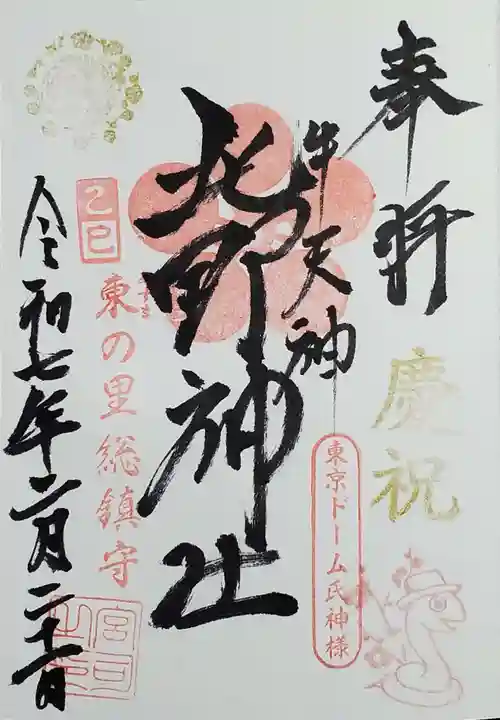 奉拝
慶祝
牛天神
北野神社
東京ドーム氏神様
乙巳
東の里総鎮守
令和七年二月二十一日
宮司之印